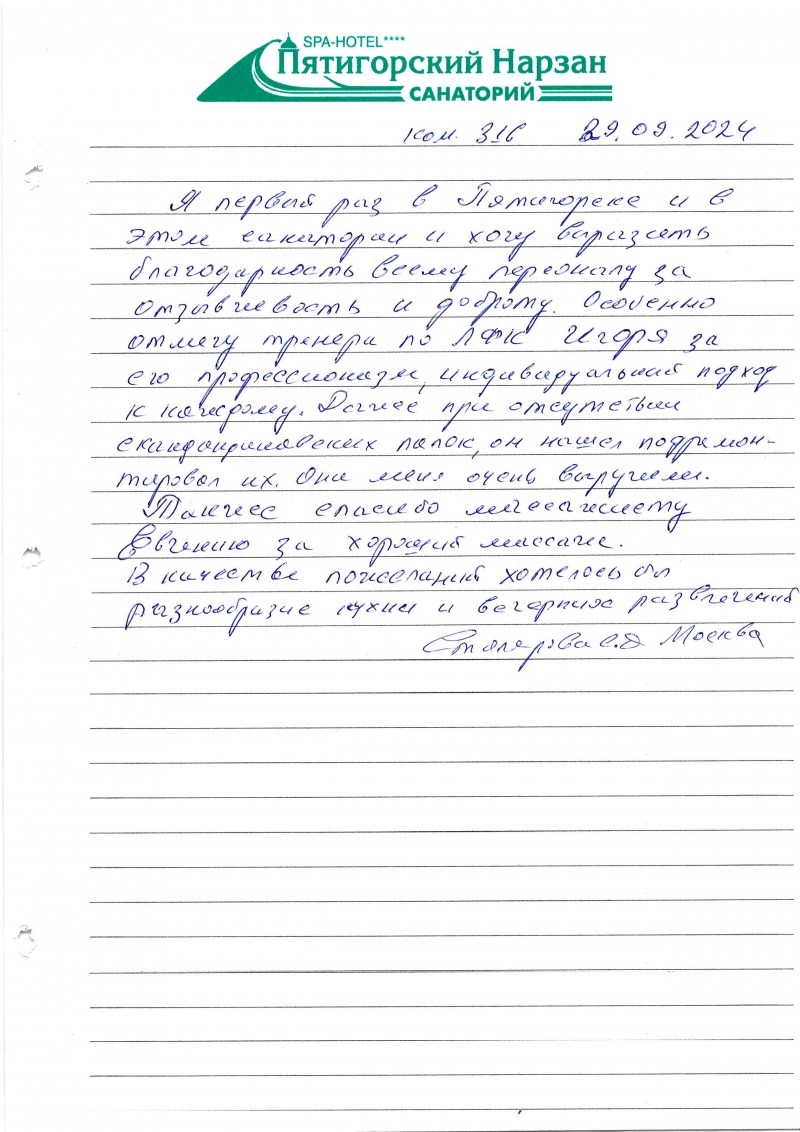 SPA-HOTEL****
Пятигорский Нарзан
САНАТОРИЙ
ком. 316 29.09.2024
Я первый раз в Пятигорске и в
этом санатории и хочу выразить
благодарность всему персоналу за
отзывчивость и доброту. Особенно
отмечу тренера по ЛФК Игоря за
его профессионазм, индивидуальний подход
к каждому. Даже при отсутствии
скандинавских палок, он нашел подремон-
тировал их. Они меня очень выручили.
Также спасибо массажисту
Евгению за хороший массаж.
В качестве пожеланий хотелось бы
разнообразие кухни и вечерних развлечений
Столярова С.Д Москва